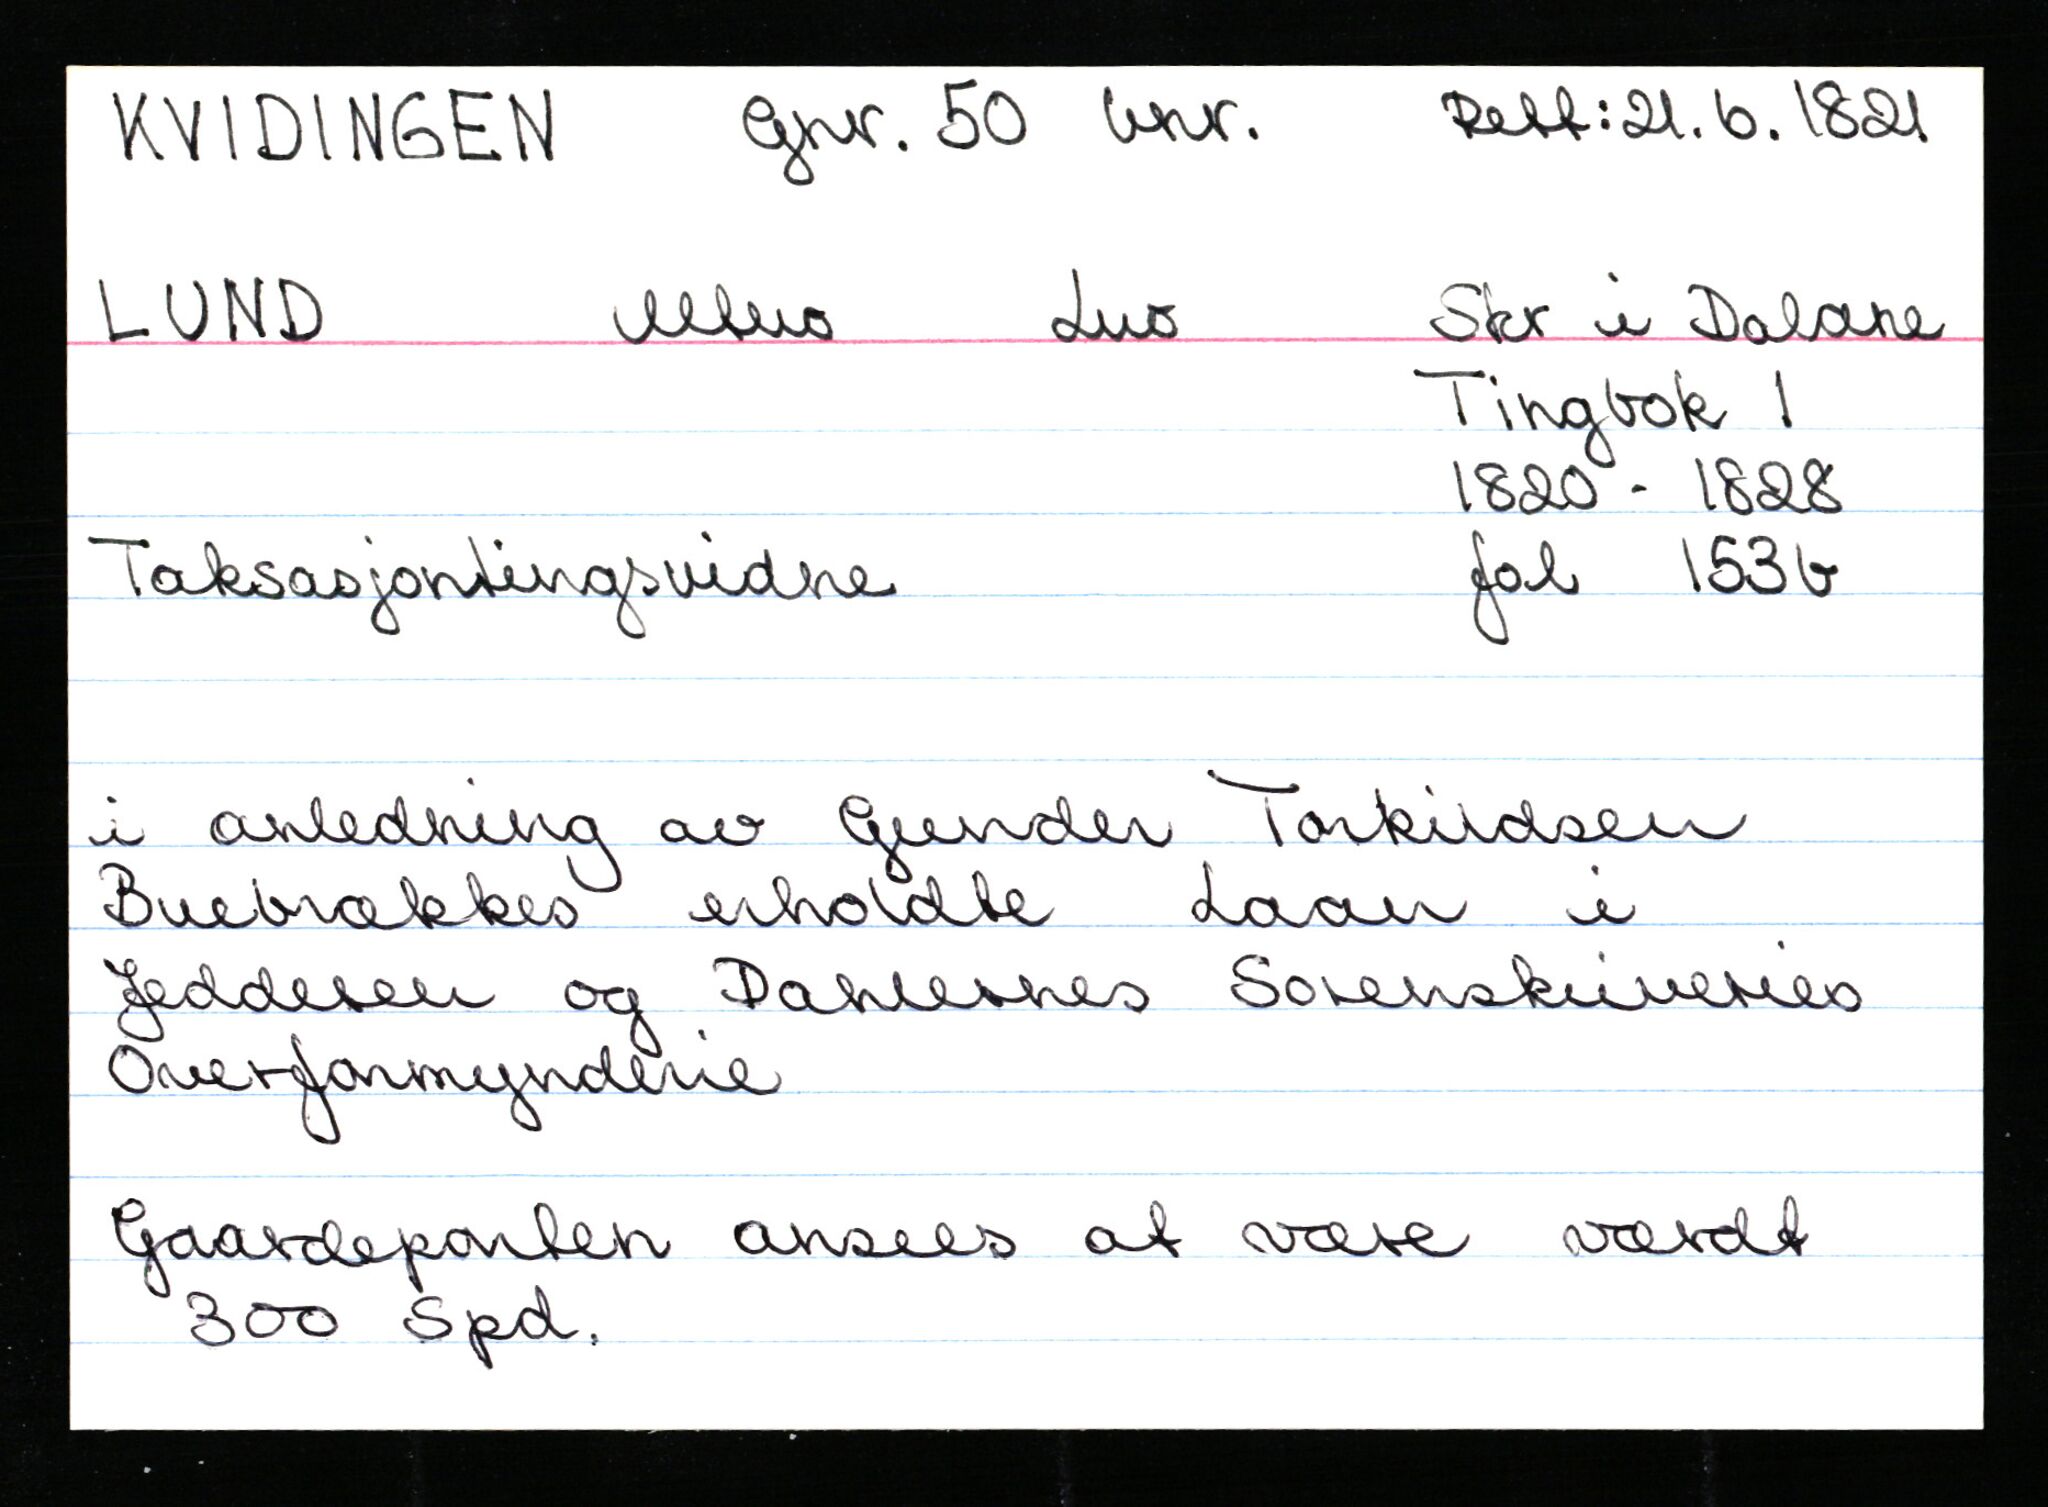 KVIDINGEN Gnr. 50 bnr. Rett: 21.6.1821
LUND Utlno Lno Skr i Dalane
Tingbok 1
1820 - 1828
Taksasjontingsvidne fol 153b
i anledning av Gunder Torkildsen
Buebrækkes erholdte Laan i
Jedderen og Dahlernes Sorenskriveries
Overformynderie
Gaardeparten ansees at være værdt
300 Spd.